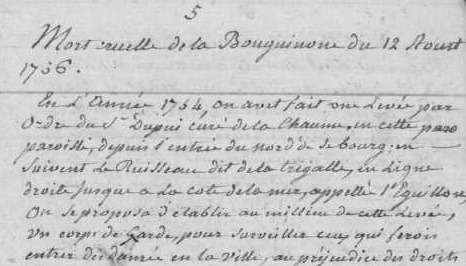 5
Mort cruelle de la Bouguinone du 12 Aoust
1756.
En L'Année 1754 on avet fait une Levée par
Ordre du Sr Dupuis curé de la Chaume, en cette paro
paroisse, depuis l'entrée du nord de se bourg, en
suivent Le Ruisseau dit de la trigalle, en Ligne
droite jusque a La cote de la mer, appellé l'Eguillon,
On se proposa d'établir au millieu de cette Levée,
un corps de Garde, pour surveiller ceux qui ferois
entrer des danrée en la ville, au préjudice des droits